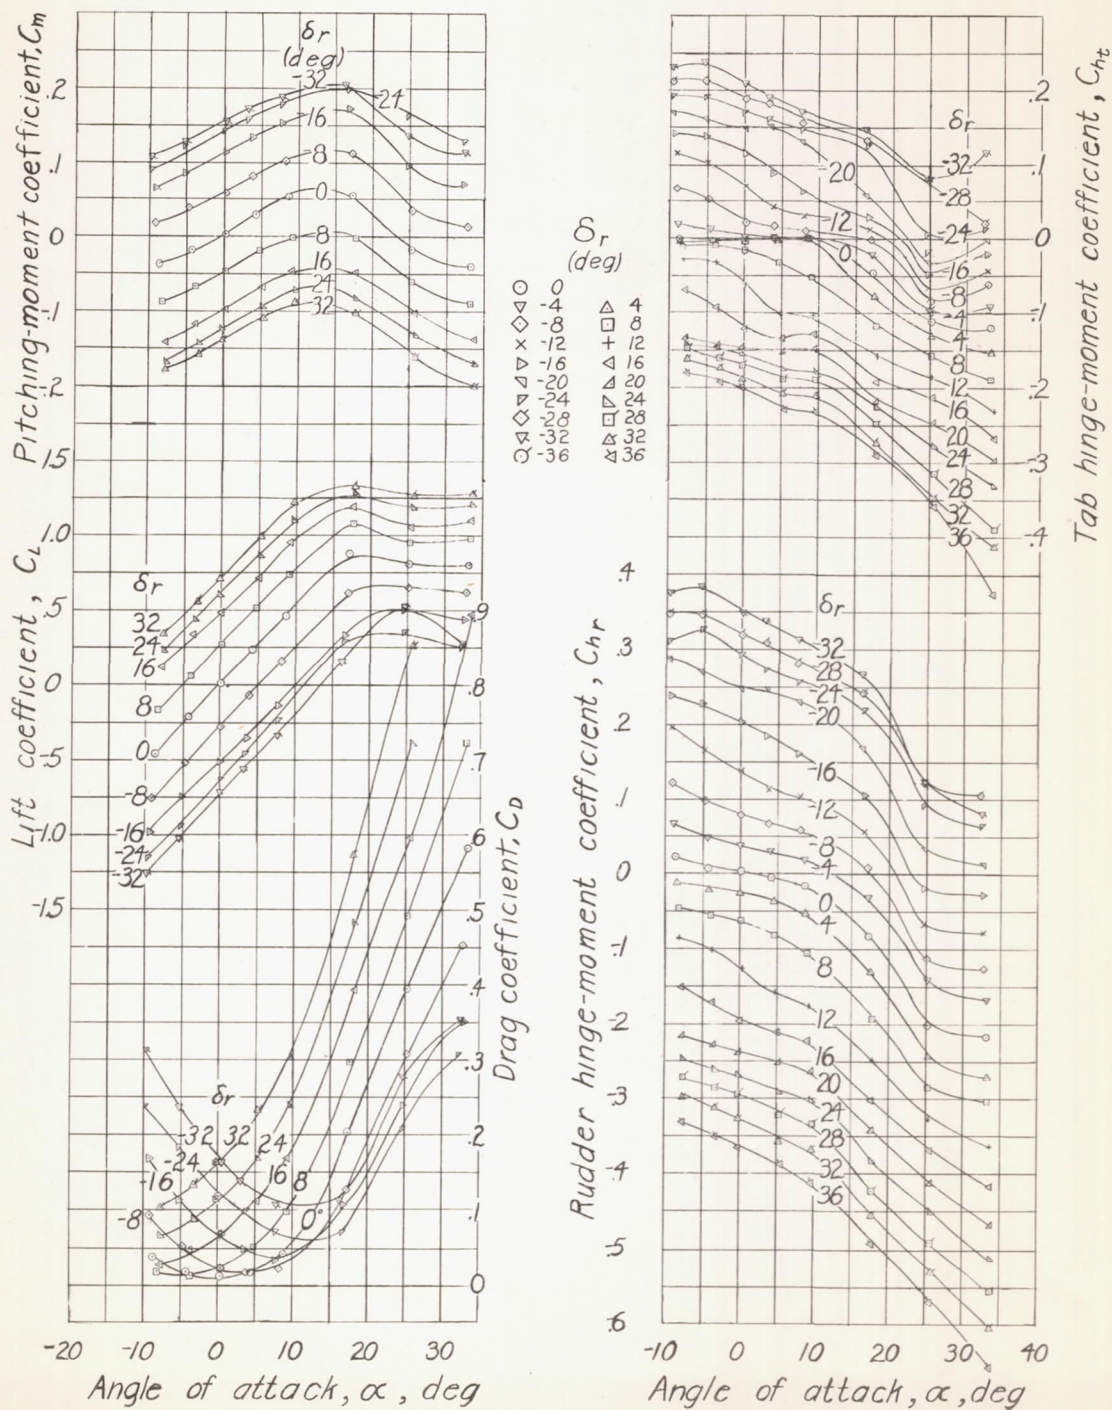 Pitching-moment coefficient, Cm
.2
.1
0
-.1
-.2
δr
(deg)
-32
24
16
-8
0
8
16
24
32
Lift coefficient, CL
1.5
1.0
.5
0
-.5
-1.0
-1.5
δr
32
24
16
8
0
-8
-16
-24
-32
Drag coefficient, CD
.9
.8
.7
.6
.5
.4
.3
.2
.1
0
δr
-32
32
-24
24
-16
16
8
-8
0°
-20
-10
0
10
20
30
Angle of attack, α, deg
δr
(deg)
0
-4
4
-8
8
-12
12
-16
16
-20
20
-24
24
-28
28
-32
32
-36
36
Tab hinge-moment coefficient, Cht
.2
.1
0
-.1
-.2
-.3
-.4
δr
-32
-28
-20
-24
12
0
-16
-8
-4
4
8
12
16
20
24
28
32
36
Rudder hinge-moment coefficient, Chr
.4
.3
.2
.1
0
-.1
-.2
-.3
-.4
.5
.6
δr
32
28
-24
-20
-16
-12
-8
-4
0
4
8
12
16
20
24
28
32
36
-10
0
10
20
30
40
Angle of attack, α, deg